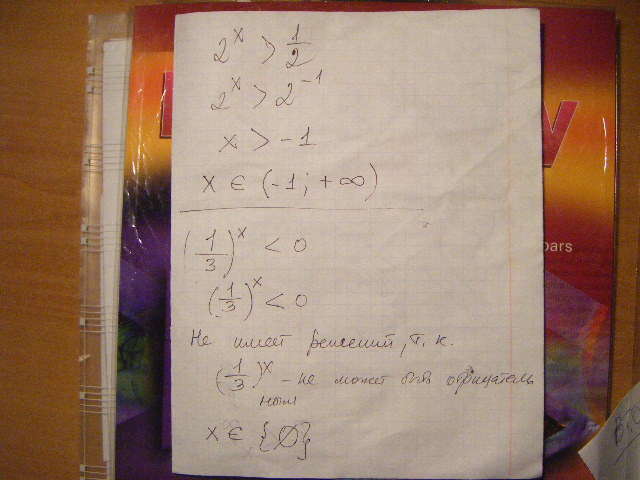 2^x > 1/2
2^x > 2^-1
x > -1
x ∈ (-1; +∞)
(1/3)^x < 0
(1/3)^x < 0
Не имеет решений, т.к.
(1/3)^x - не может быть отрицатель
ным
x ∈ {∅}